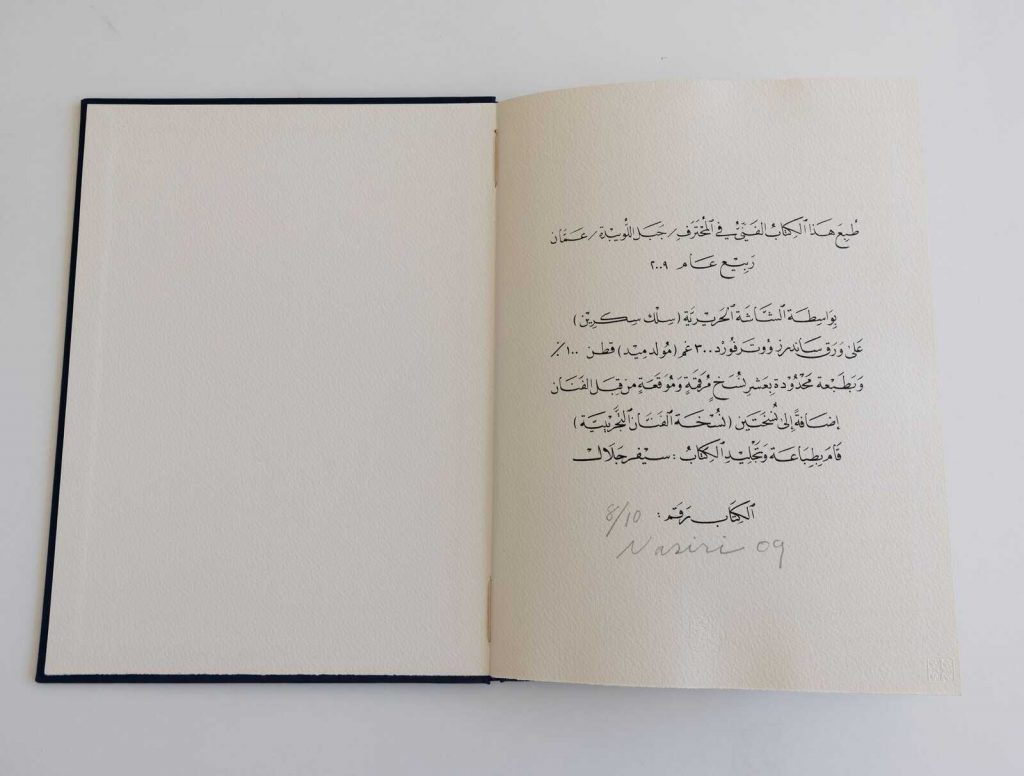 طُبِعَ هَذَا ٱلكِتَابُ ٱلفَنِّيُّ فِي ٱلمُحْتَرَفِ / جَبَل ٱللُّوَيْبِدَة / عَمَّان
رَبِيْع عَام ٢٠٠٩
بِوَاسِطَة ٱلشَّاشَة ٱلحَرِيْرِيَّة (سِلْك سِكْرِيْن)
عَلَى وَرَق سَاندِرز وُوتَرفُورْد ٣٠٠ غم (مُولد مِيْد) قطن ١٠٠٪
وَبِطَبْعَة مَحْدُوْدَة بِعَشْرِ نُسَخٍ مُرَقَّمَةٍ وَمُوَقَّعَةٍ مِن قِبَلِ ٱلفَنَّان
إضَافَةً إلَى نُسْخَتَيْن (نُسْخَة ٱلفَنَّان ٱلتَّجْرِيْبِيَّة)
قَامَ بِطِبَاعَة وَتَجْلِيْدِ ٱلكِتَابُ : سِيْفَر جَلَال
ٱلكِتَاب رَقَم : 8/10
Nasiri 09